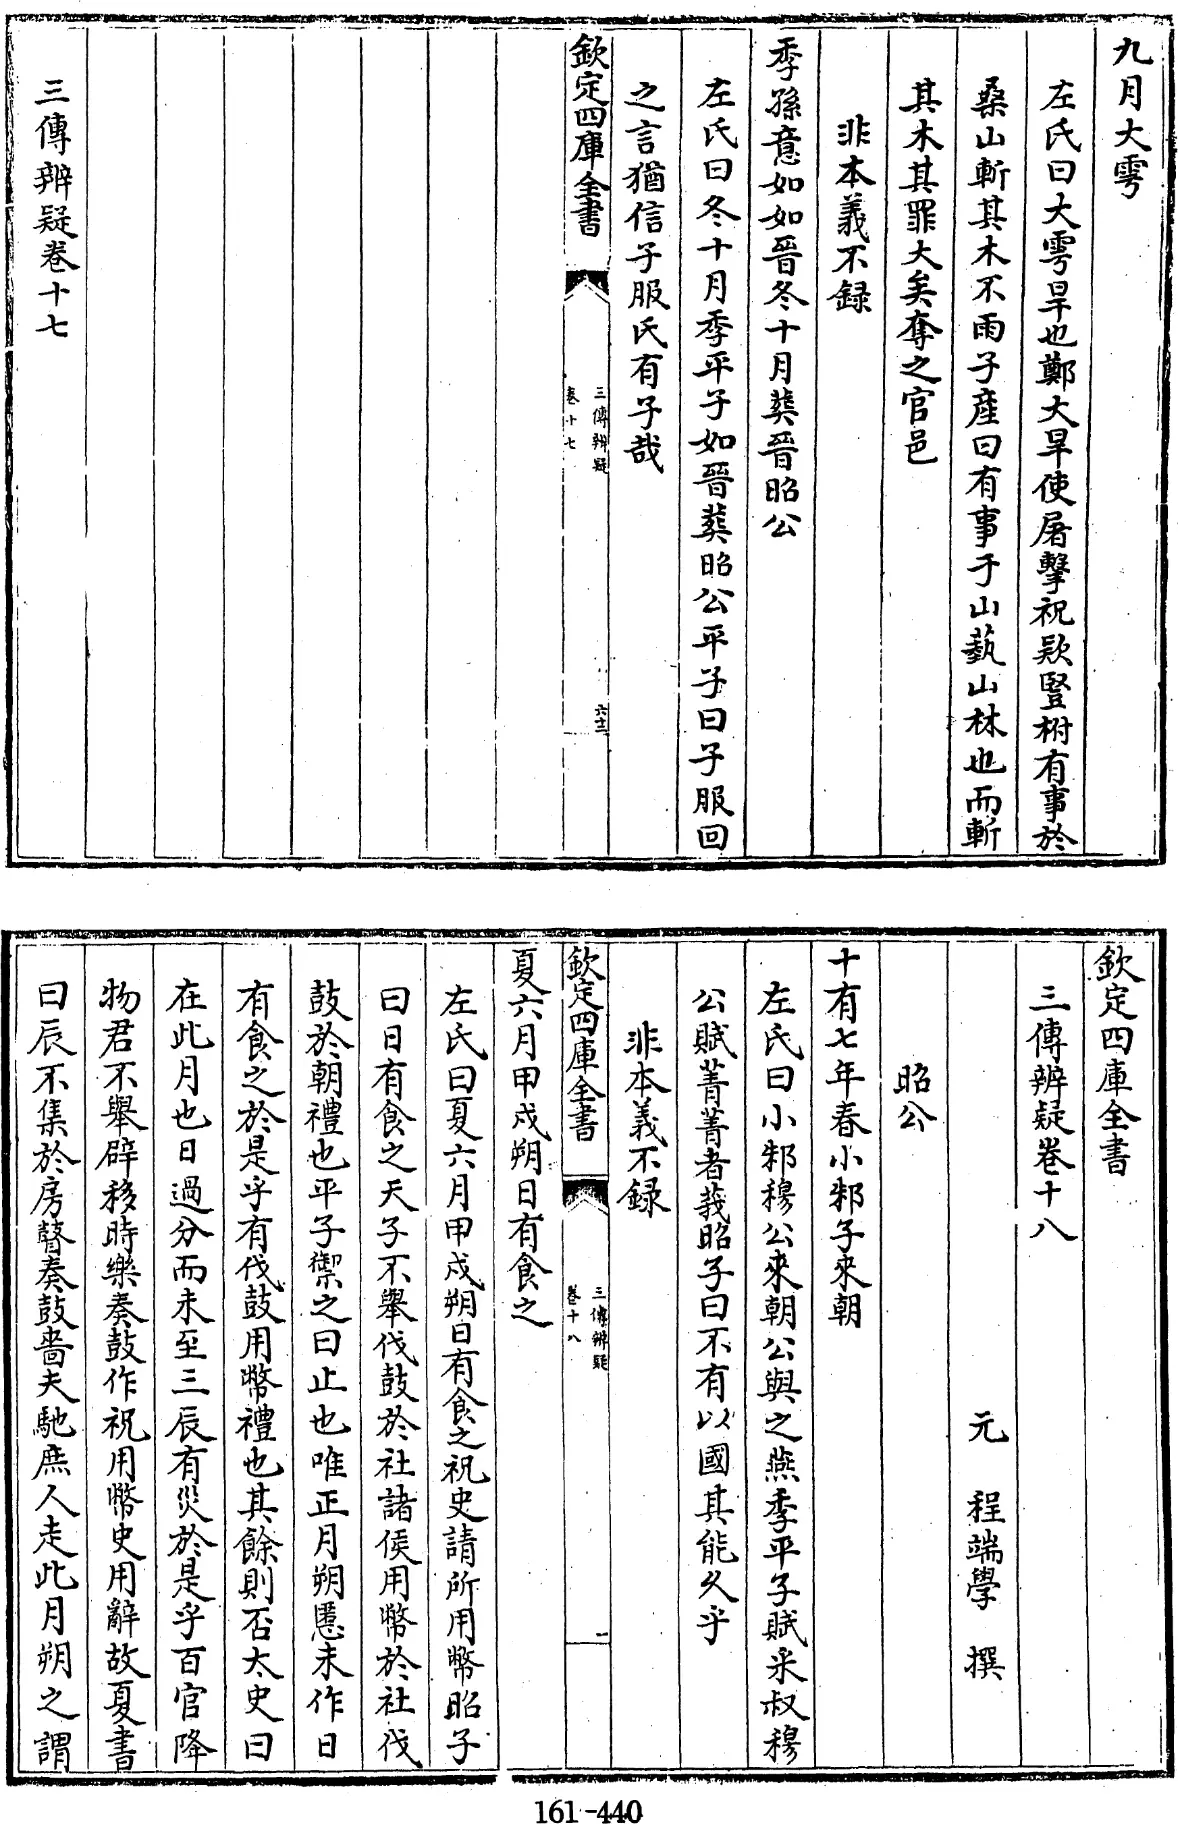 九月大雩
左氏曰大雩旱也鄭大旱使屠擊祝款豎柎有事於
桑山斬其木不雨子產曰有事于山蓺山林也而斬
其木其罪大矣奪之官邑
非本義不録
季孫意如如晉冬十月葬晉昭公
左氏曰冬十月季平子如晉葬昭公平子曰子服回
之言猶信子服氏有子哉
欽定四庫全書
三傳辨疑
卷十七
六十三
三傳辨疑卷十七
欽定四庫全書
三傳辨疑卷十八
元 程端學 撰
昭公
十有七年春小邾子來朝
左氏曰小邾穆公來朝公與之燕季平子賦采叔穆
公賦菁菁者莪昭子曰不有以國其能久乎
非本義不録
欽定四庫全書
三傳辨疑
卷十八
一
夏六月甲戌朔日有食之
左氏曰夏六月甲戌朔日有食之祝史請所用幣昭子
曰日有食之天子不舉伐鼓於社諸侯用幣於社伐
鼓於朝禮也平子禦之曰止也唯正月朔慝未作日
有食之於是乎有伐鼓用幣禮也其餘則否太史曰
在此月也日過分而未至三辰有災於是乎百官降
物君不舉辟移時樂奏鼓作祝用幣史用辭故夏書
曰辰不集於房瞽奏鼓嗇夫馳庶人走此月朔之謂
161-440